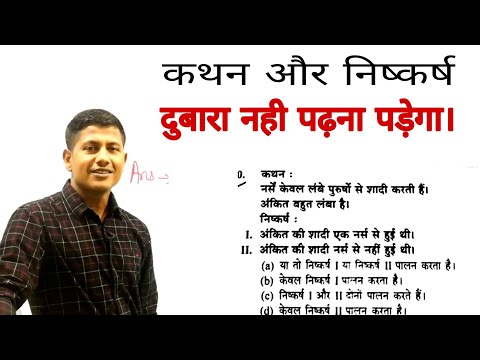 कथन और निष्कर्ष
दुबारा नही पढ़ना पड़ेगा।
Ans →
0. कथन :
नर्सें केवल लंबे पुरुषों से शादी करती हैं।
अंकित बहुत लंबा है।
निष्कर्ष :
I. अंकित की शादी एक नर्स से हुई थी।
II. अंकित की शादी नर्स से नहीं हुई थी।
(a) या तो निष्कर्ष I या निष्कर्ष II पालन करता है।
(b) केवल निष्कर्ष I पालन करता है।
(c) निष्कर्ष I और II दोनों पालन करते हैं।
(d) केवल निष्कर्ष II पालन करता है।